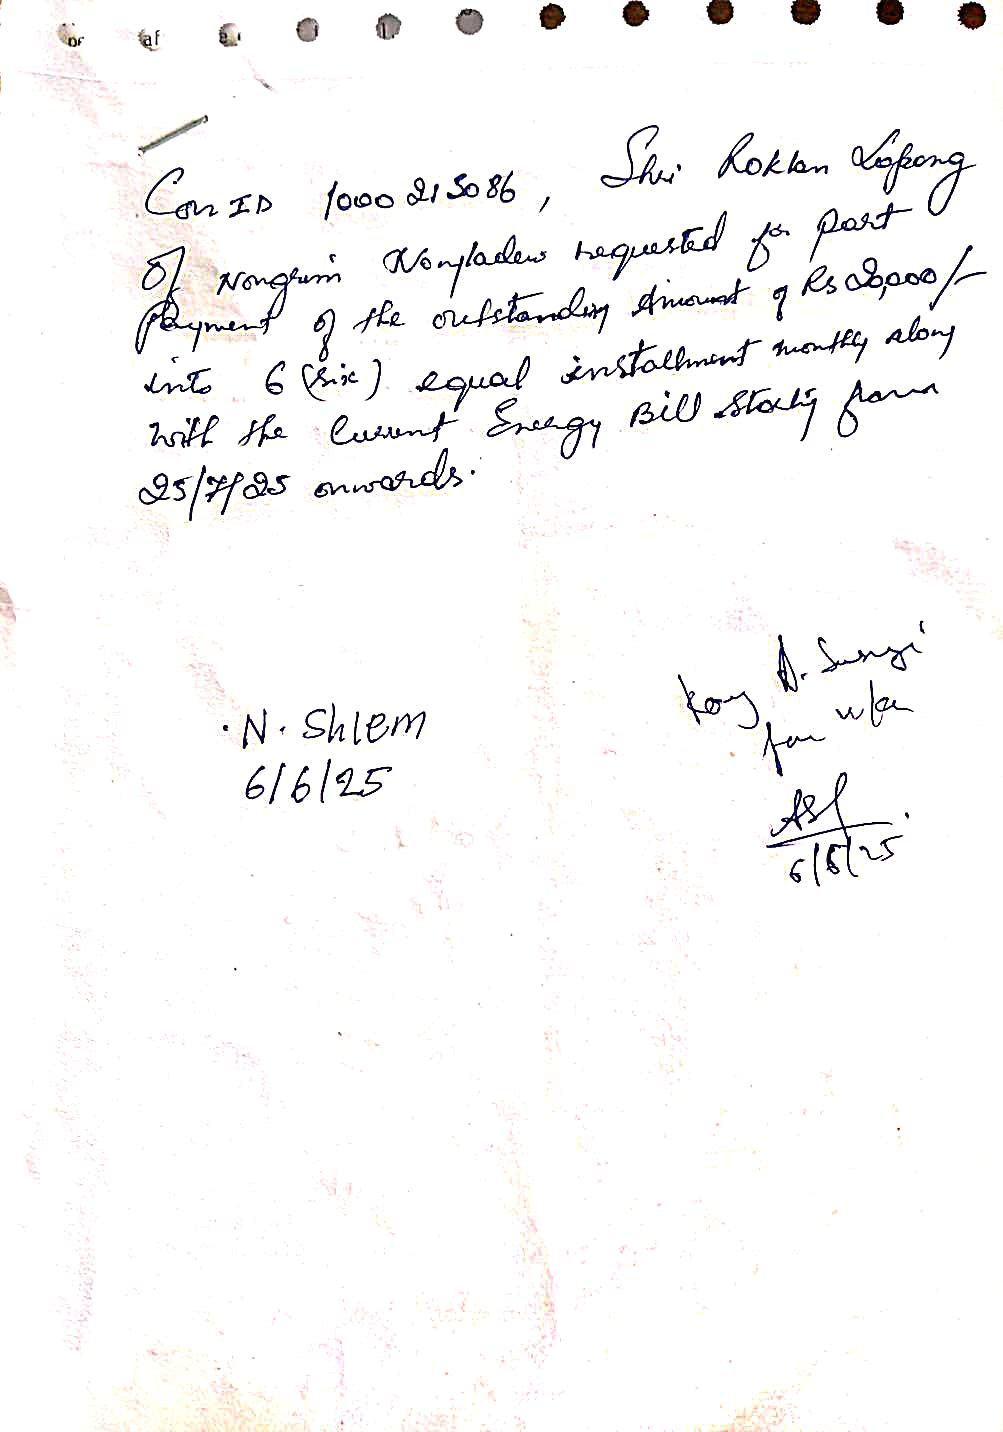 Con ID 1000215086, Shri Roklan Lapang
Of Nongrim Nongladew requested for part
payment of the outstanding Amount of Rs 20,000/-
into 6 (six) equal installment monthly along
with the Current Energy Bill Starting from
25/7/25 onwards.
N. Shlem
6/6/25
for n/a
6/6/25